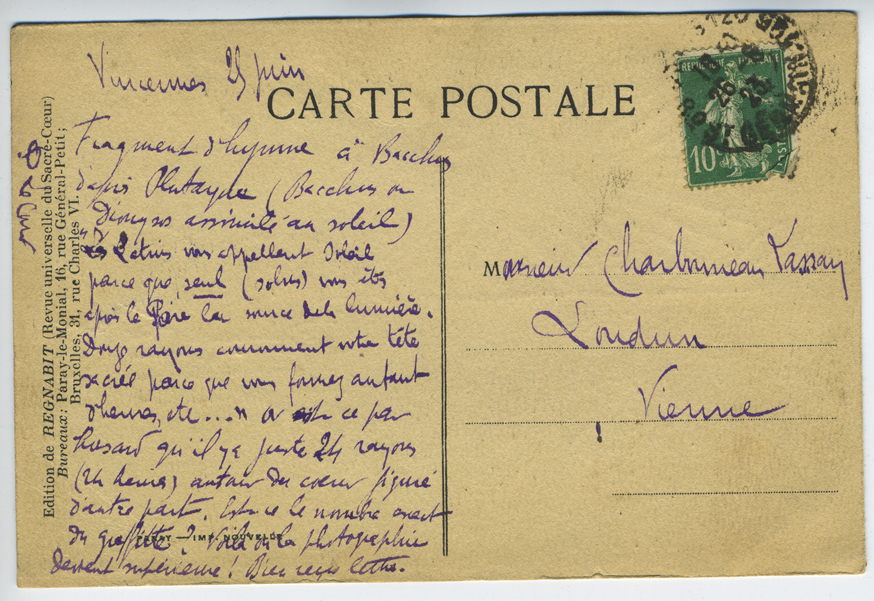 Vincennes 25 juin
CARTE POSTALE
Fragment d'hymne à Bacchus
dans Plutarque (Bacchus ou
Dionysos assimilé au soleil)
Les Latins vous appellent Soleil
parce que, seul (solus) vous êtes
après le Père la source de la lumière.
Douze rayons couronnent votre tête
sacrée parce que vous formez autant
d'heures, etc... " Or est ce par
hasard qu'il y a juste 24 rayons
(24 heures) autour du coeur figuré
d'autre part. Est-ce le nombre exact
du graffite? Voilà où la photographie
devient supérieure! Bien reçu lettre.
Edition de REGNABIT (Revue universelle du Sacré-Cœur)
Bureaux: Paray-le-Monial, 16, rue Général-Petit;
Bruxelles, 31, rue Charles VI.
PARAY — IMP. NOUVELLE
REPUBLIQUE FRANÇAISE
10
POSTES
Monsieur Charbonneau Lassay
Loudun
Vienne